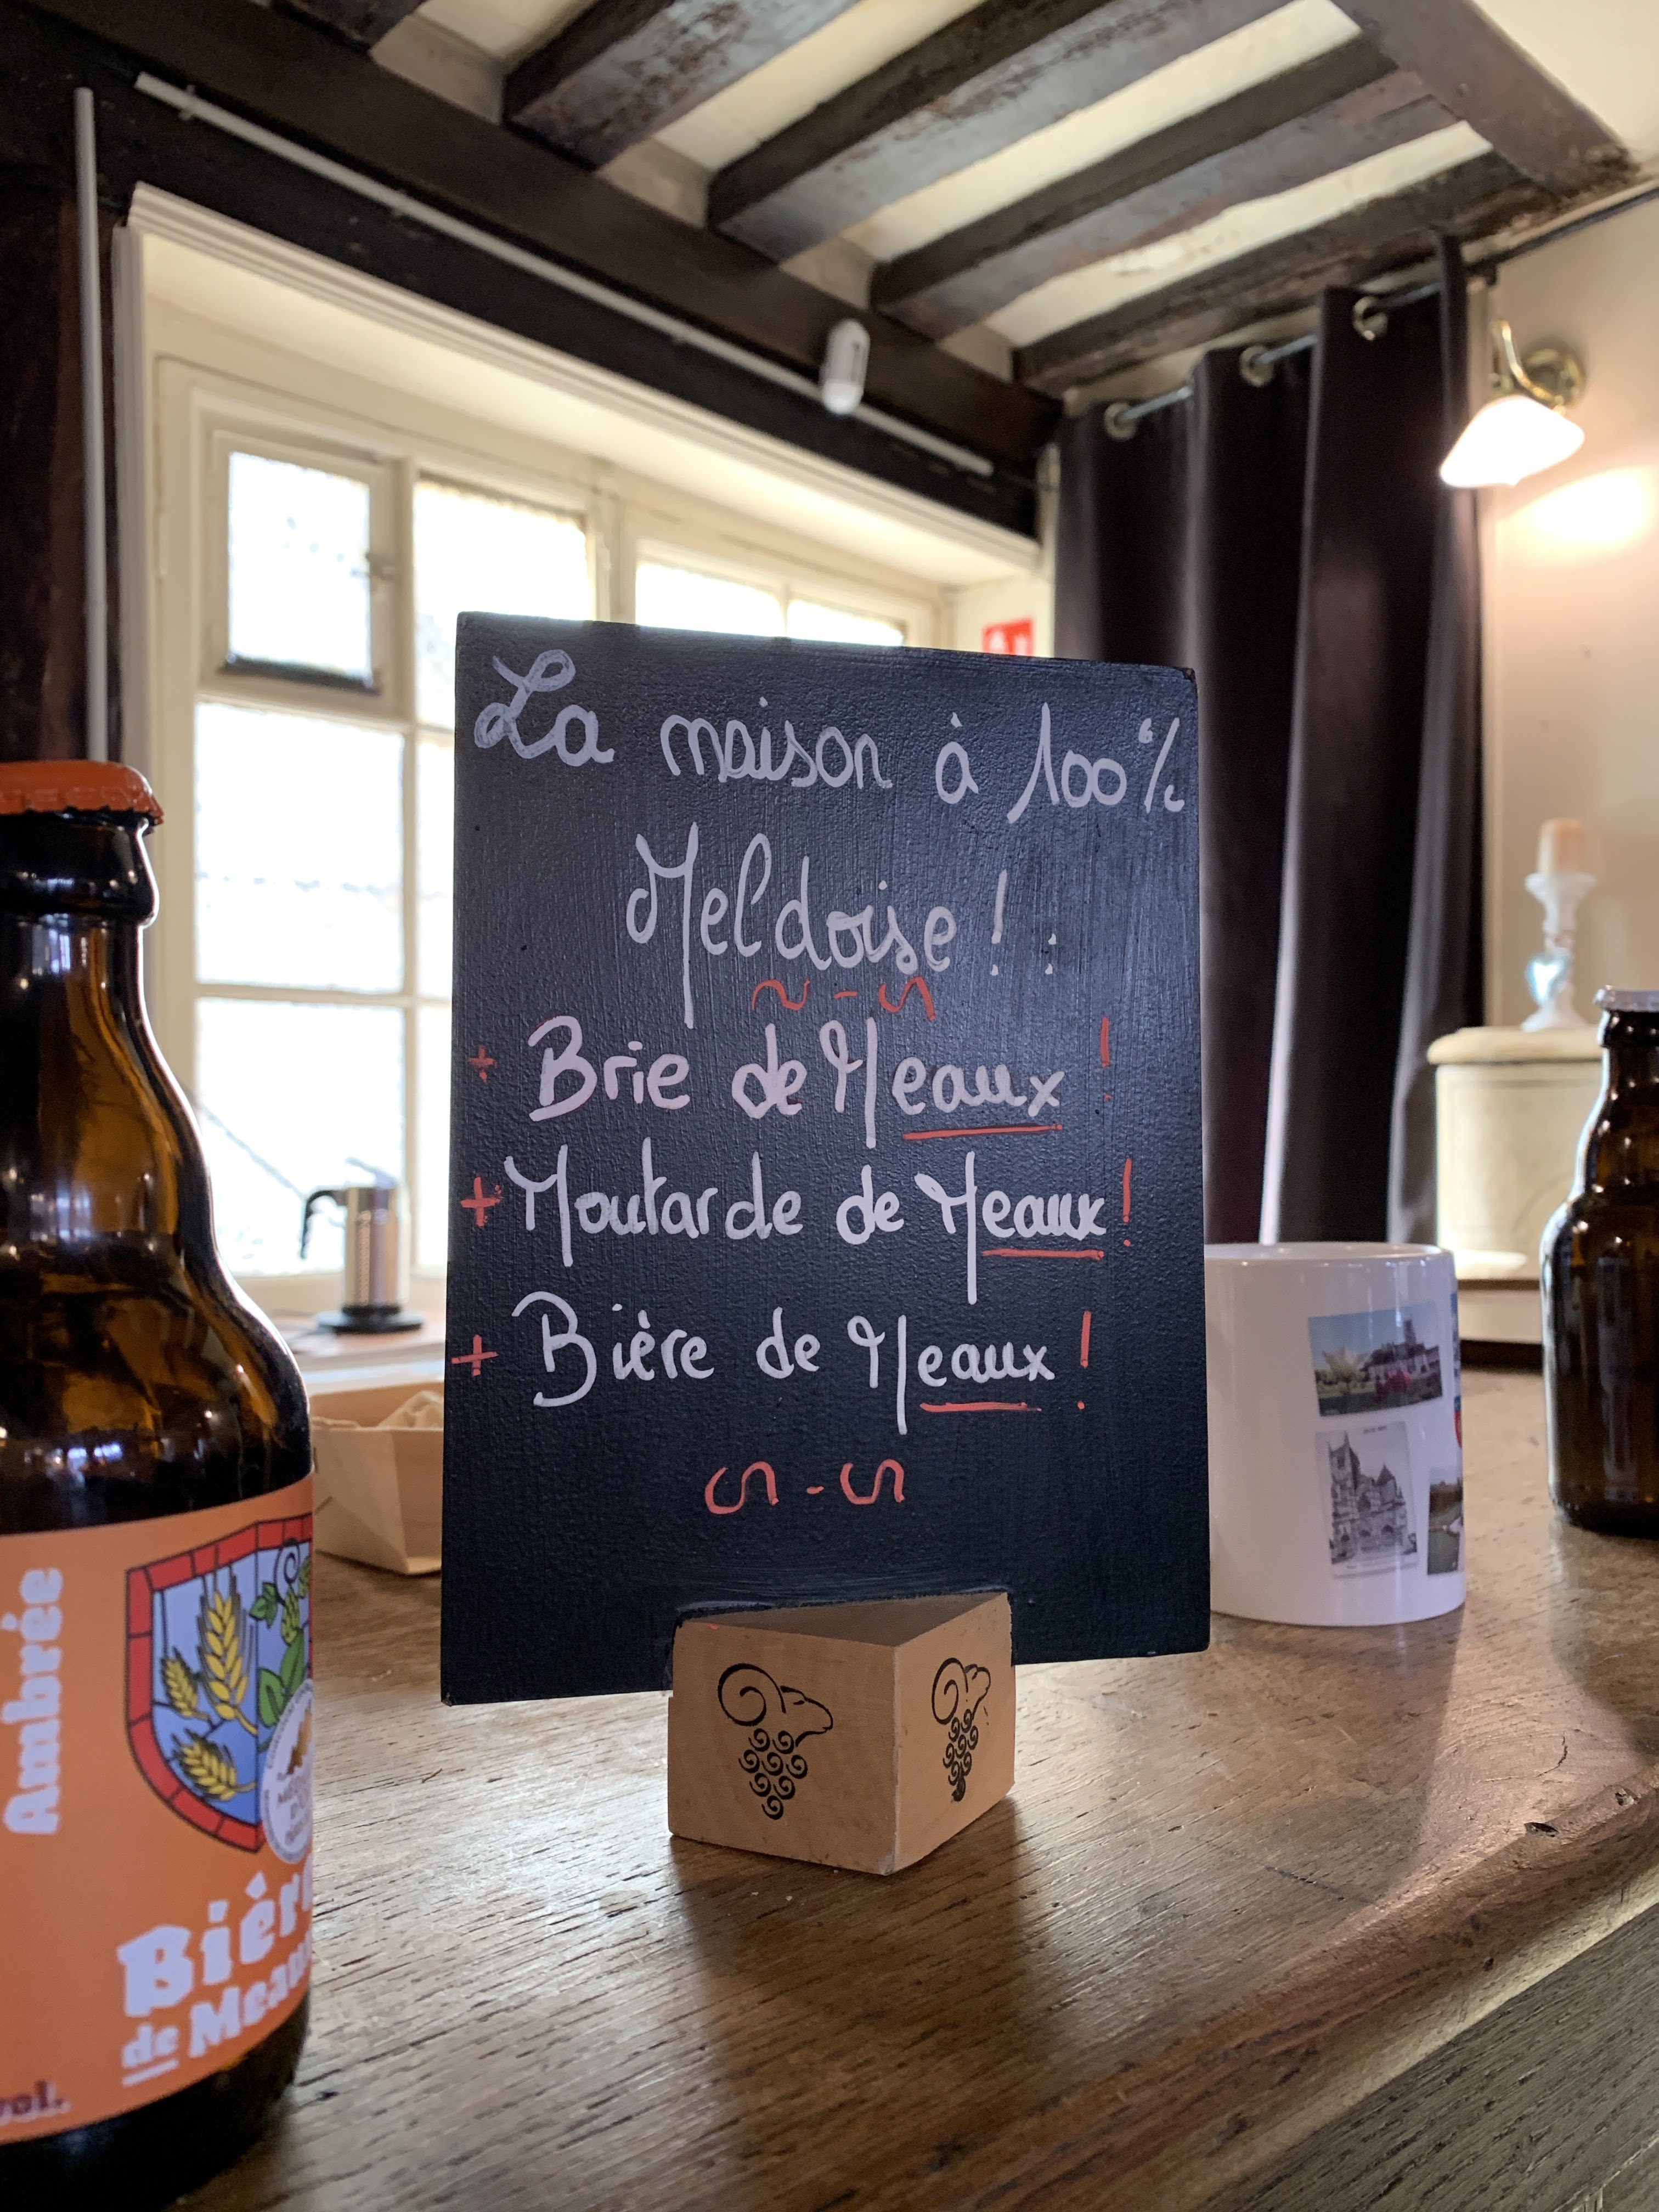 La maison à 100%
Meldoise ! :
+ Brie de Meaux !
+ Moutarde de Meaux !
+ Bière de Meaux !
Ambrée
Bière
de Meaux
vol.